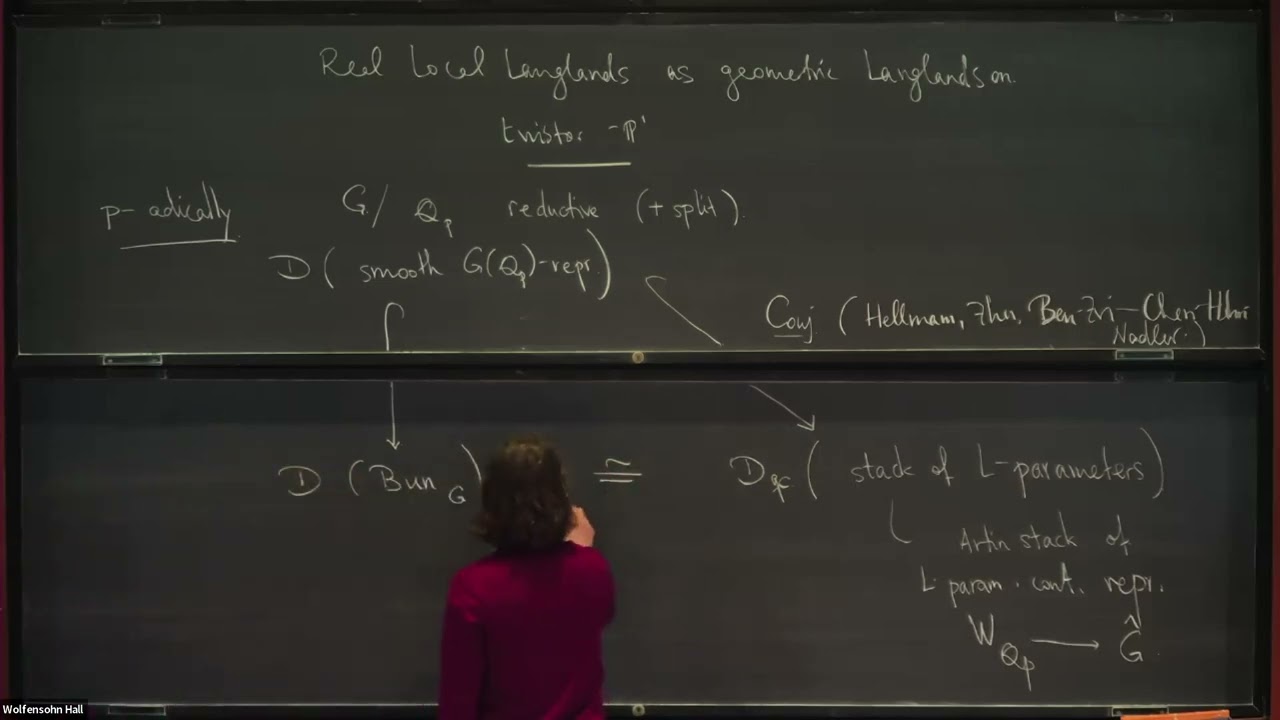 Real Local Langlands as geometric Langlands on
twistor -ℙ¹
p-adically G/ℚ_p reductive (+ split).
D( smooth G(ℚ_p)-repr.)
Conj. (Hellmann, Zhu, Ben-Zvi–Chen–Helm
Nadler.)
D (Bun_G) ≅ D_qc( stack of L-parameters)
Artin stack of
L-param. cont. repr.
W_ℚp ⟶ Ĝ
Wolfensohn Hall